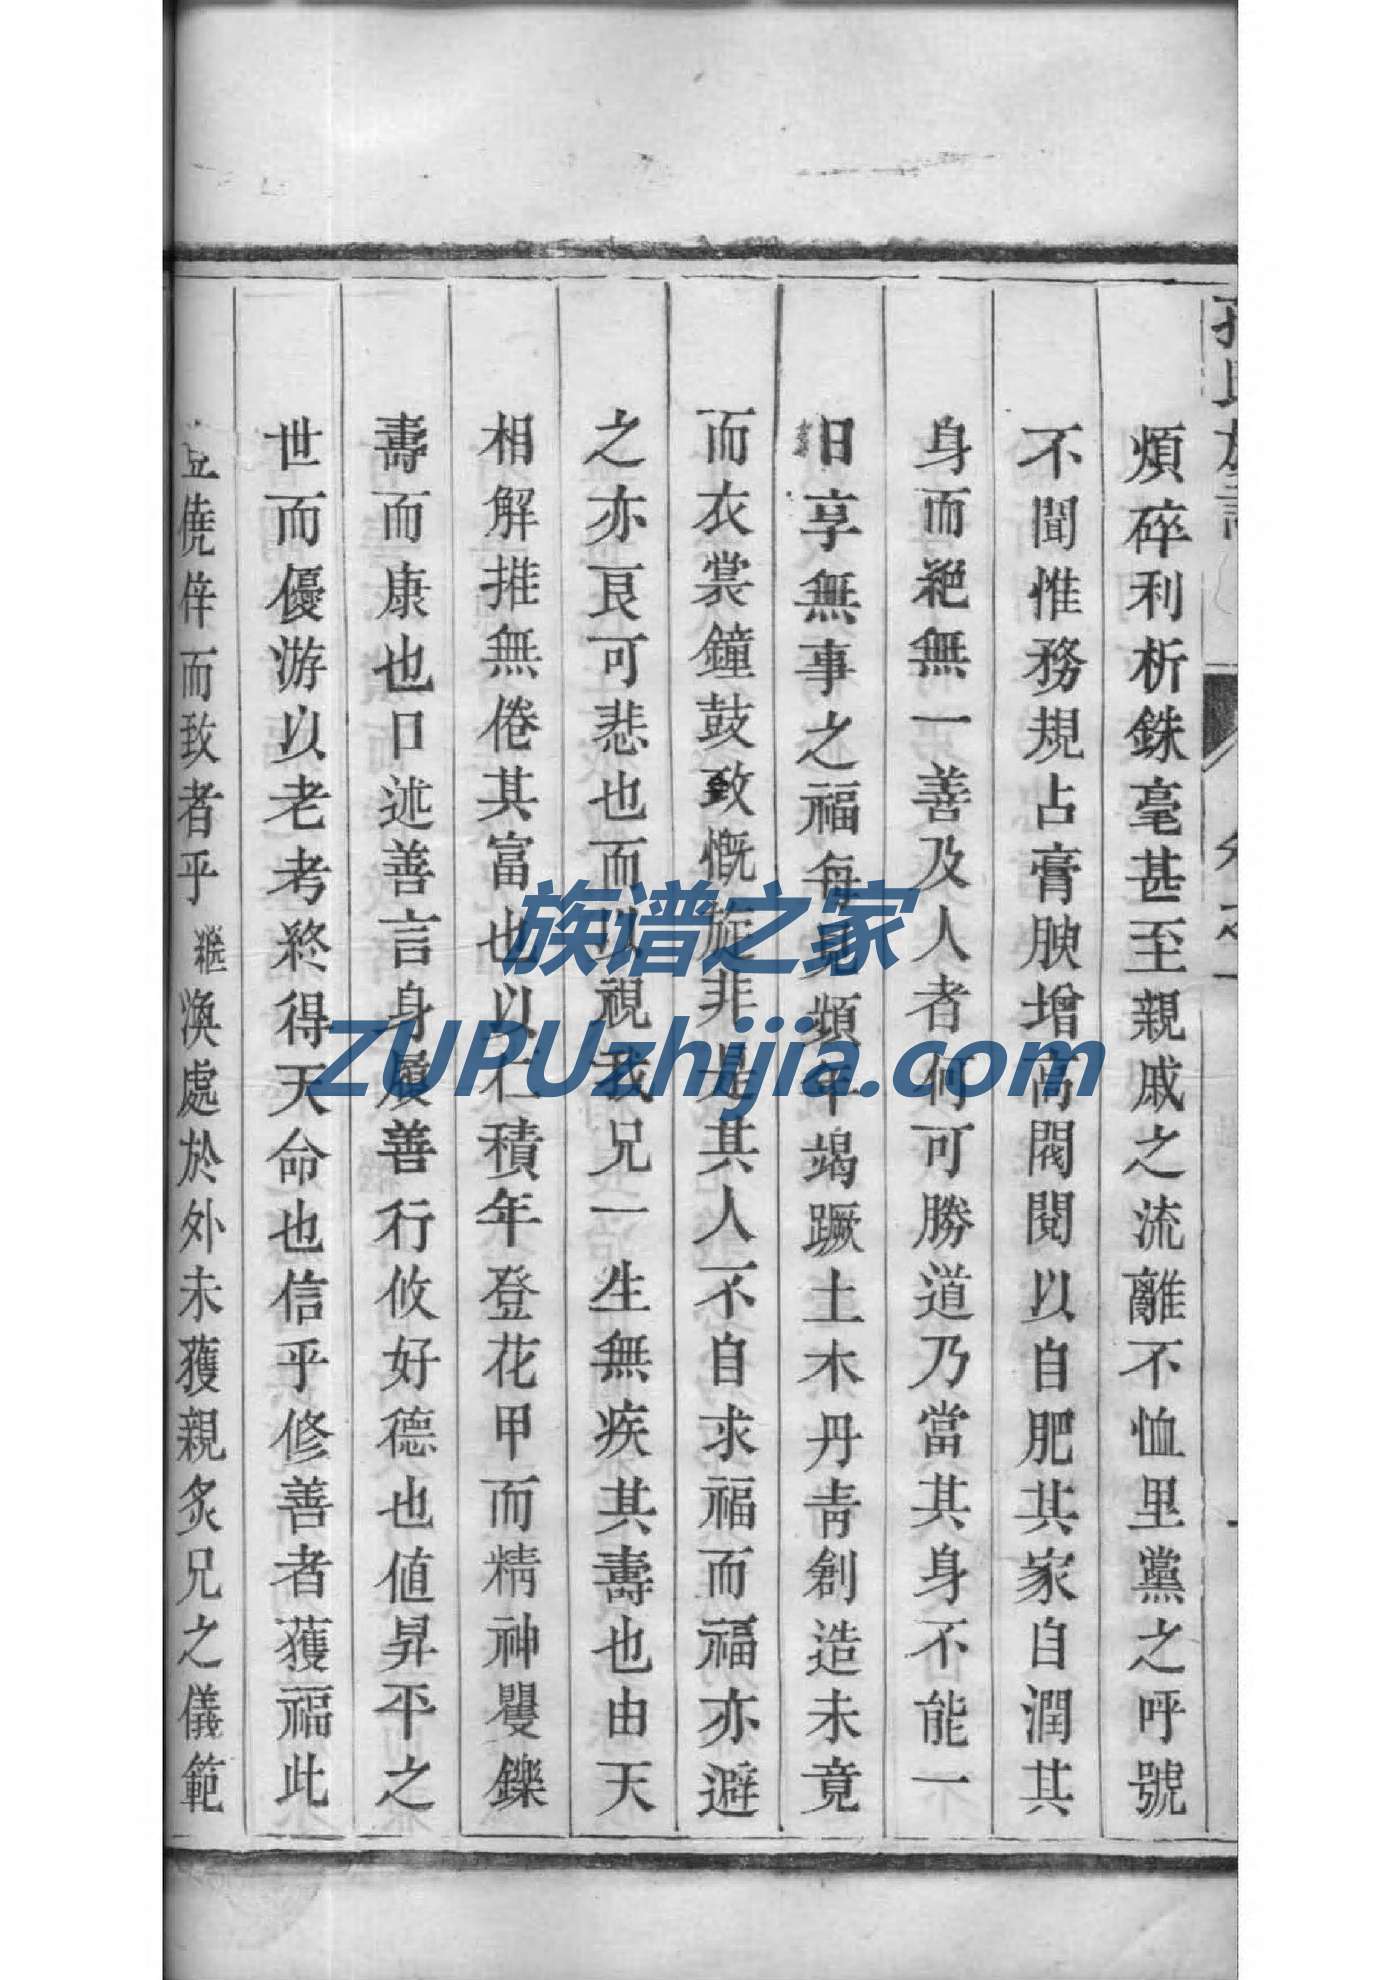 孫氏族譜
卷之一
煩碎利析銖毫甚至親戚之流離不恤里黨之呼號
不聞惟務規占膏腴增高閥閱以自肥其家自潤其
身而絕無一善及人者何可勝道乃當其身不能一
日享無事之福每見頻年竭蹶土木丹青創造未竟
而衣裳鐘鼓致慨旋非是其人不自求福而福亦避
之亦良可悲也而以視我兄一生無疾其壽也由天
相解推無倦其富也以仁積年登花甲而精神矍鑠
壽而康也口述善言身履善行攸好德也值昇平之
世而優游以老考終得天命也信乎修善者獲福此
豈僥倖而致者乎繼渙處於外未獲親炙兄之儀範
族谱之家
ZUPUzhijia.com